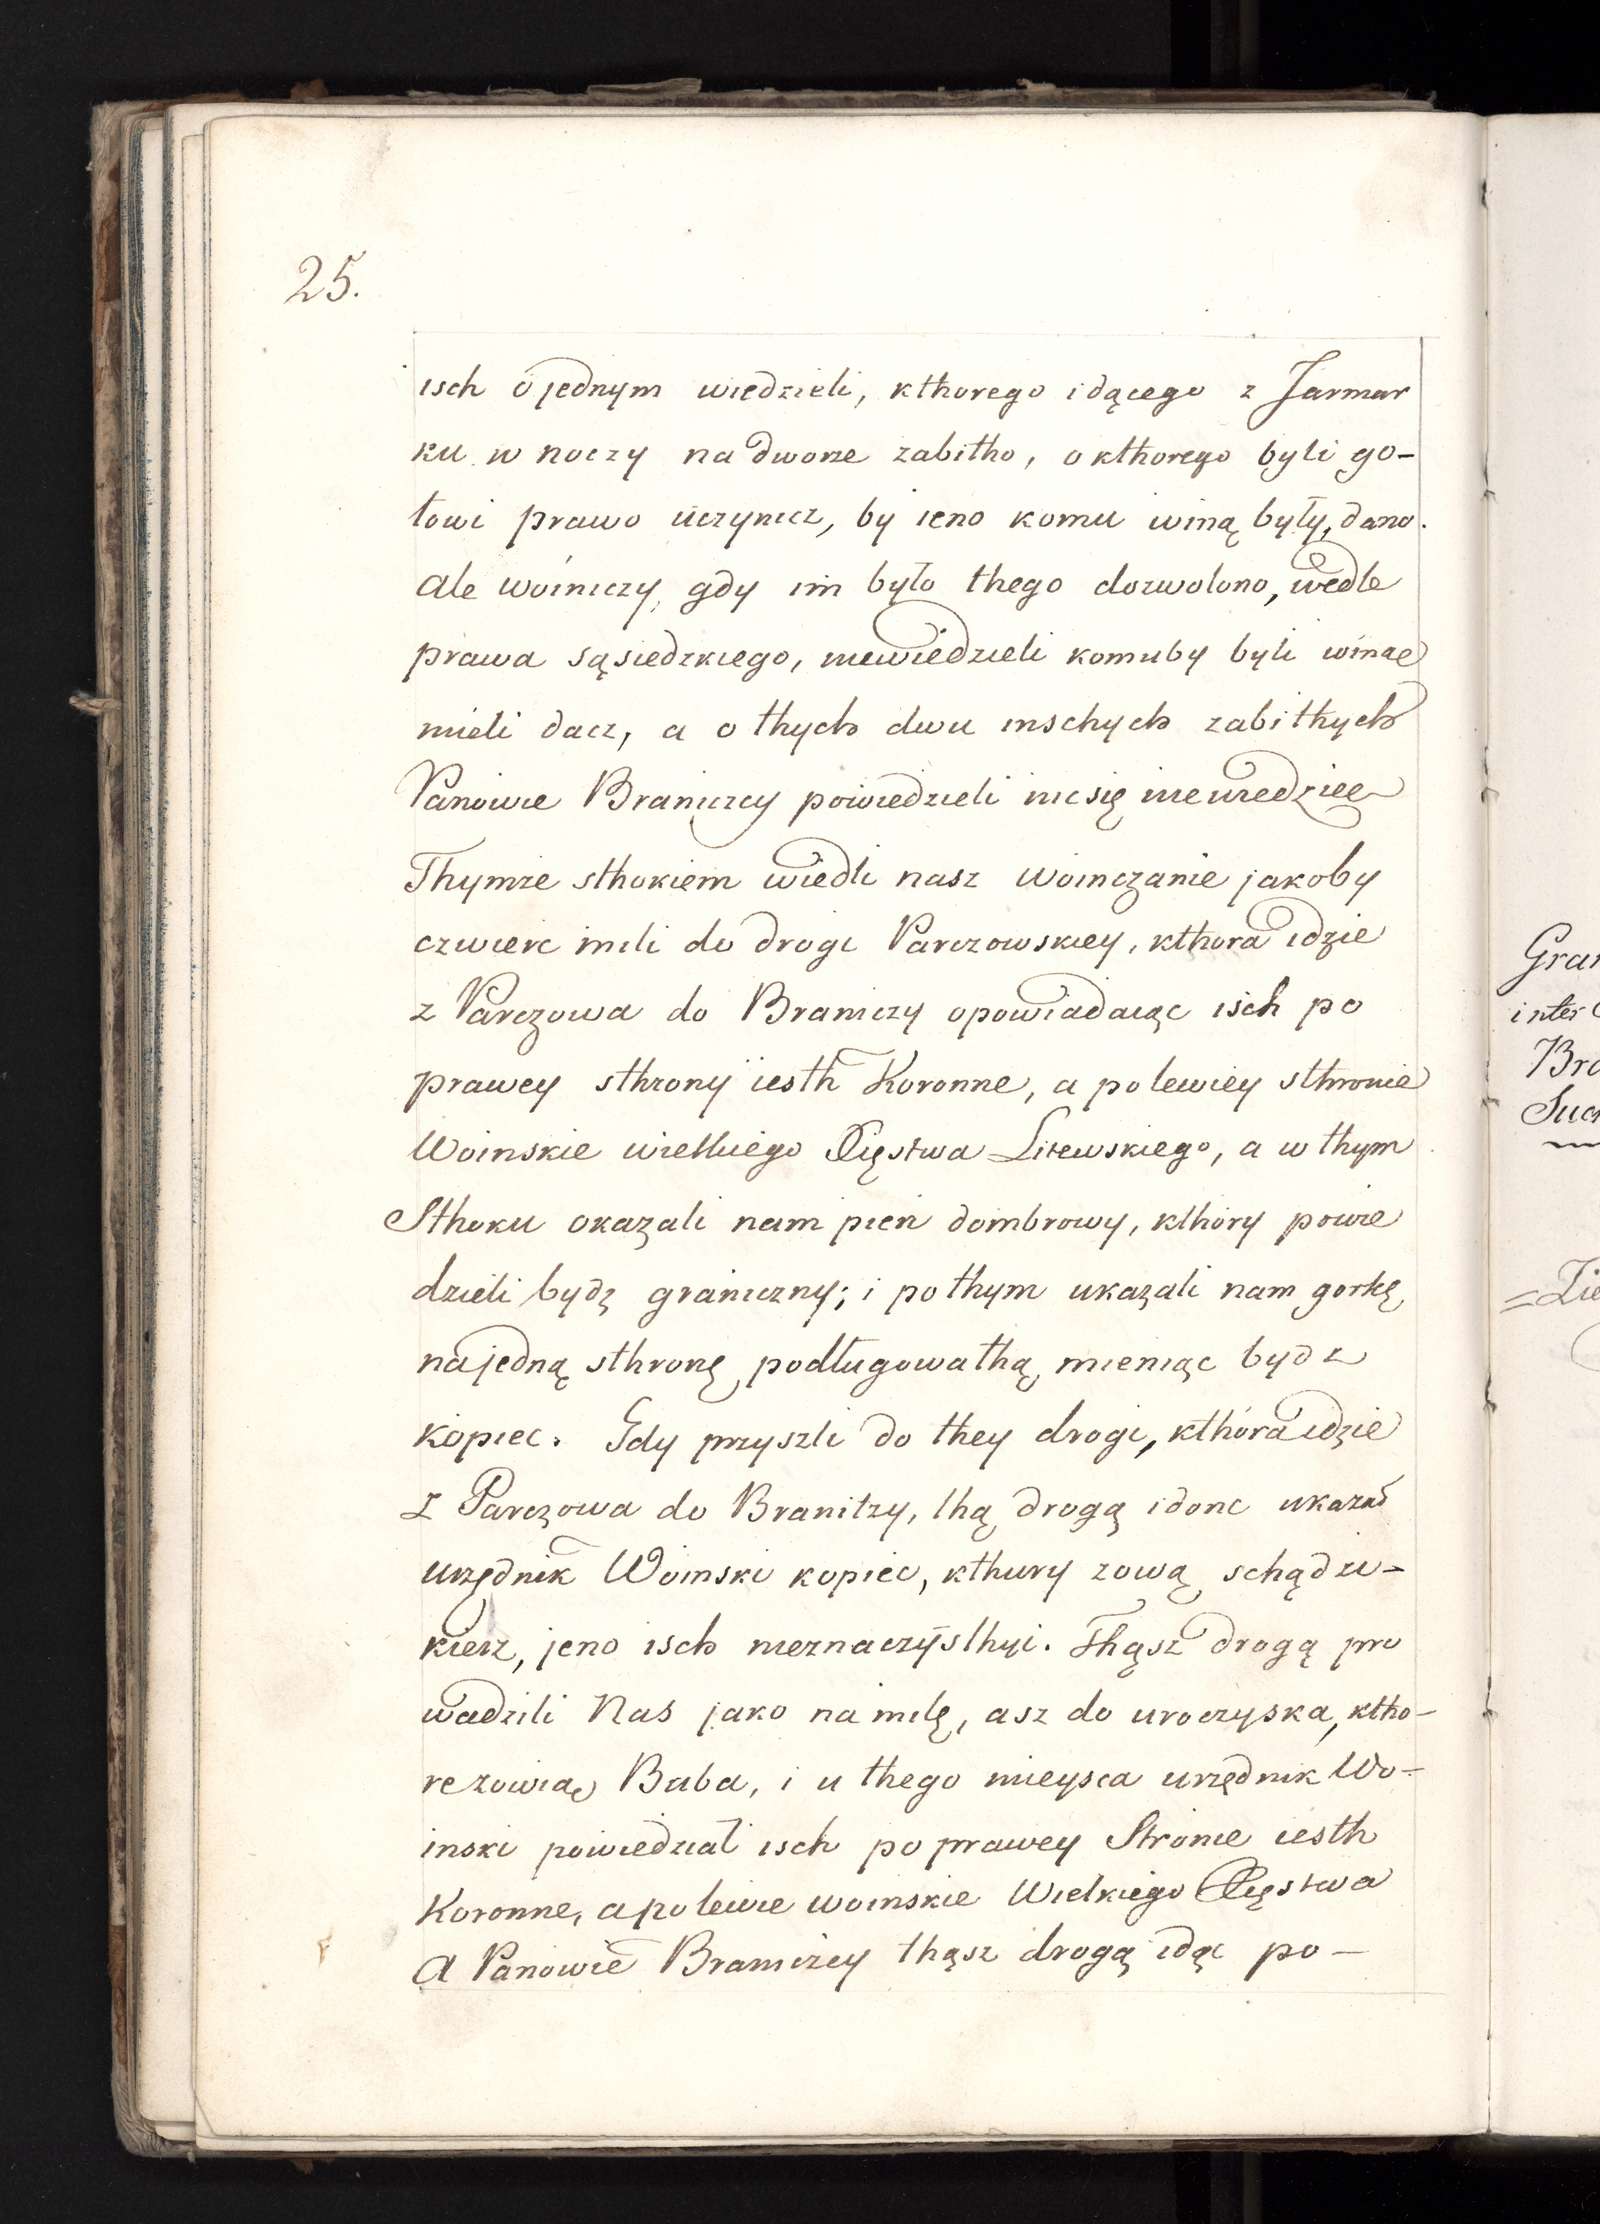 25.
isch o jednym wiedzieli, kthorego idącego z Jarmar
ku w noczy na dworze zabitho, o kthorego byli go-
towi prawo uczynicz, by ieno komu winą były, dano.
Ale woiniczy, gdy im było thego dozwolono, wedle
prawa sąsiedzkiego, niewiedzieli komuby byli winae
mieli dacz, a o thych dwu inschych zabithych
Panowie Braniczcy powiedzieli nic się niewiedziec
Thymze sthokiem wiedli nasz woinczanie jakoby
czwierc mili do drogi Parczowskiey, kthora idzie
z Parczowa do Braniczy opowiadaiąc isch po
prawey sthrony iesth Koronne, a polewiey sthronie
Woinskie wielkiego Xięstwa Litewskiego, a w thym
Sthoku okazali nam pień dombrowy, kthóry powie
dzieli bydz graniczny; i pothym ukazali nam gorkę
na jedną sthronę podługowathą, mieniąc bydz
kopiec. Gdy przyszli do they drogi, kthóra idzie
z Parczowa do Branitzy, thą drogą idonc ukazał
urzędnik Woinski kopiec, kthury zową schądzi-
kierz, jeno isch nieznaczysthyi. Thąsz drogą pro
wadzili Nas jako na milę, asz do uroczyska, ktho-
re zowią Baba, i u thego mieysca urzędnik Wo-
inski powiedział isch po prawey Stronie iesth
Koronne, a polewie woinskie Wielkiego Xięstwa
A Panowie Braniczcy thąsz drogą idąc po-
Gran
inter
Bra
Suc
=Zie